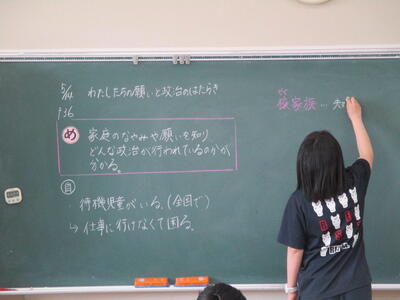 5/14 わたしたちの願いと政治のはたらき
P36
め 家庭のなやみや願いを知り
どんな政治が行われているのかが
分かる。
自
待機児童がいる。(全国で)
→仕事に行けなくて困る。
家族…